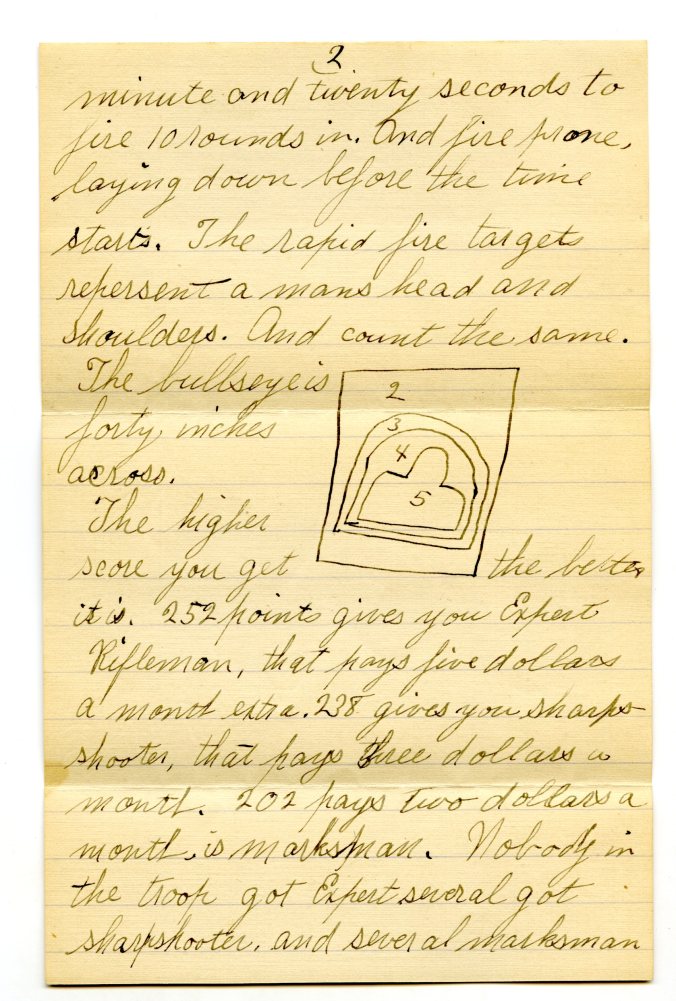 2
minute and twenty seconds to
fire 10 rounds in. And fire prone,
laying down before the time
starts. The rapid fire targets
repersent a mans head and
shoulders. And count the same.
The bullseye is
forty inches
across.
2
3
4
5
The higher
score you get the better
it is. 252 points gives you Expert
Rifleman, that pays five dollars
a month extra. 238 gives you sharp-
shooter, that pays three dollars a
month. 202 pays two dollars a
month, is marksman. Nobody in
the troop got Expert several got
sharpshooter, and several marksman